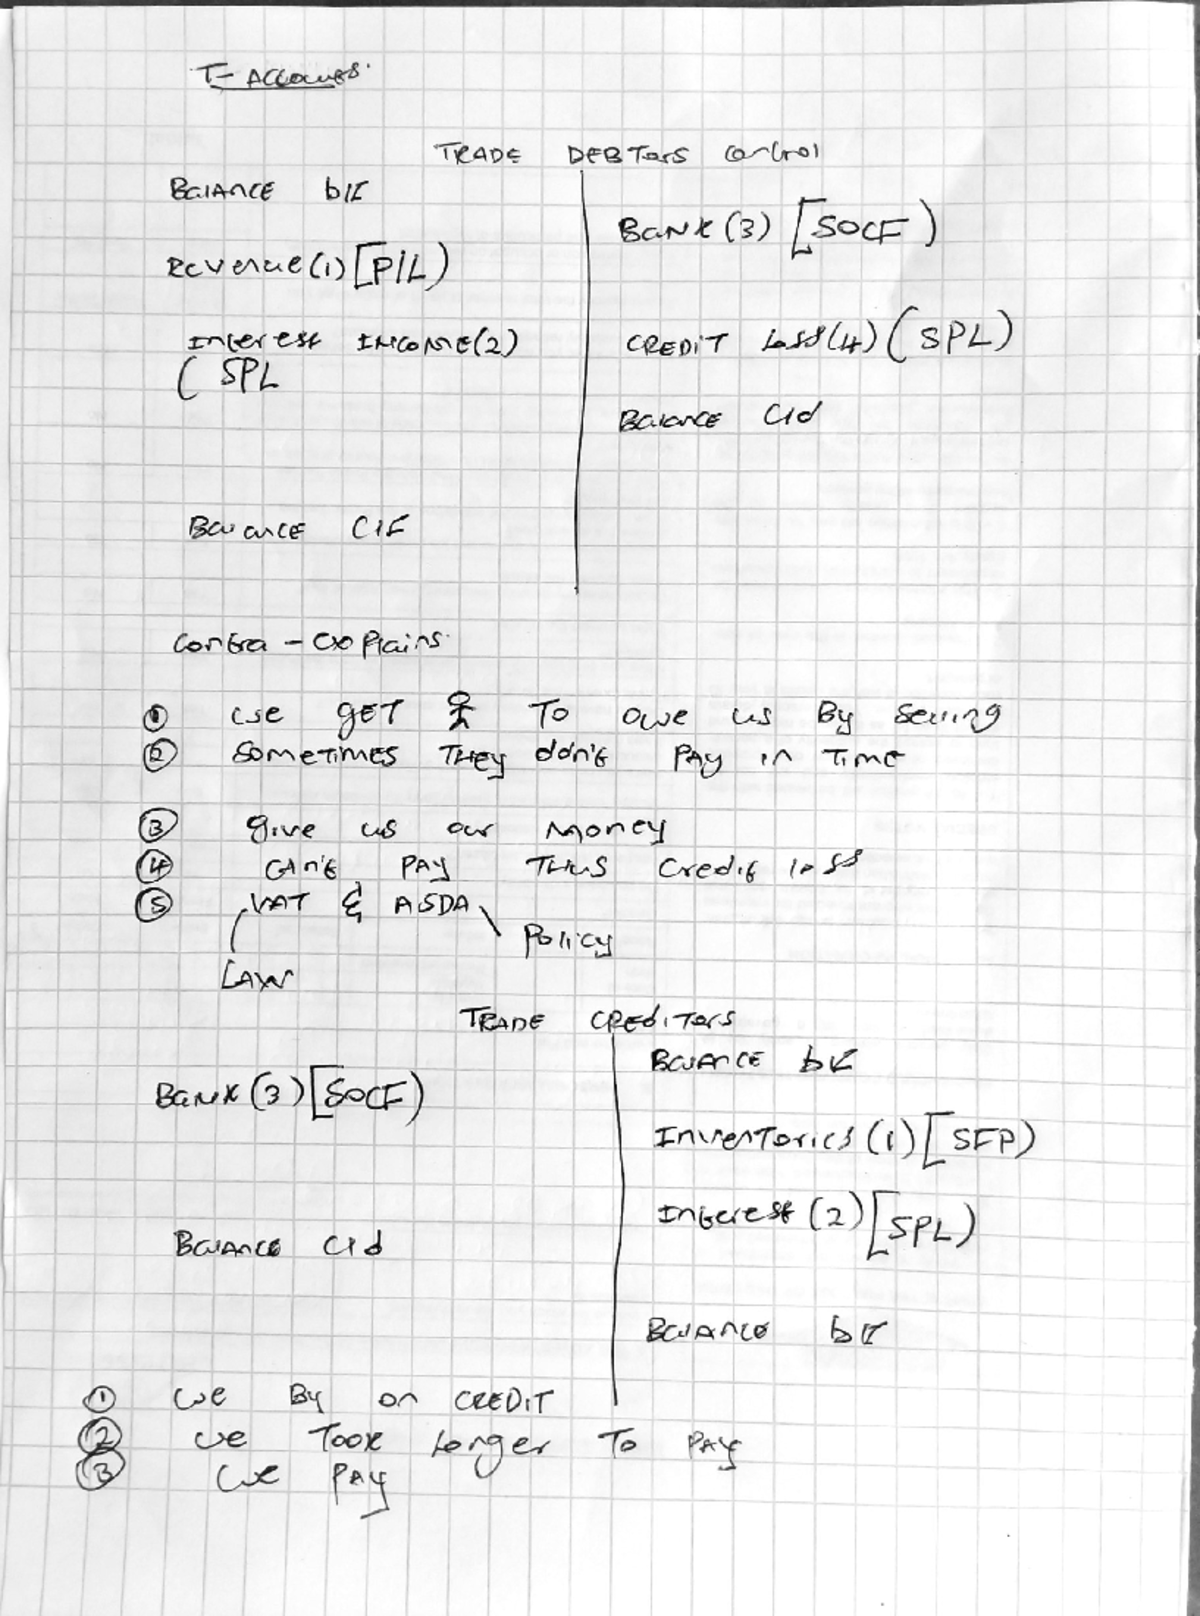 T- Accounts.
TRADE DEBTors control
BalANCE b/f
BANK (3) [SOCF)
Revenue (1) [P/L)
Interest INCOME(2)
CREDIT Loss(4) (SPL)
( SPL
Balance c/d
Balance C/F
Contra - explains.
① we GET TO owe us By selling
② SOMETIMES THEy don't PAy in TimE
③ give us our money
④ CAn't PAY THUS Credit loss
⑤ VAT & ASDA
Policy
LAW
TRADE CREdiTors
BALANCE b/f
BANK (3) [SOCF)
InvenTories (1) [SFP)
Interest (2) [SPL)
BALANCE c/d
BALANCE b/f
① we By on CREDIT
② we Took Longer To PAy
③ we PAy